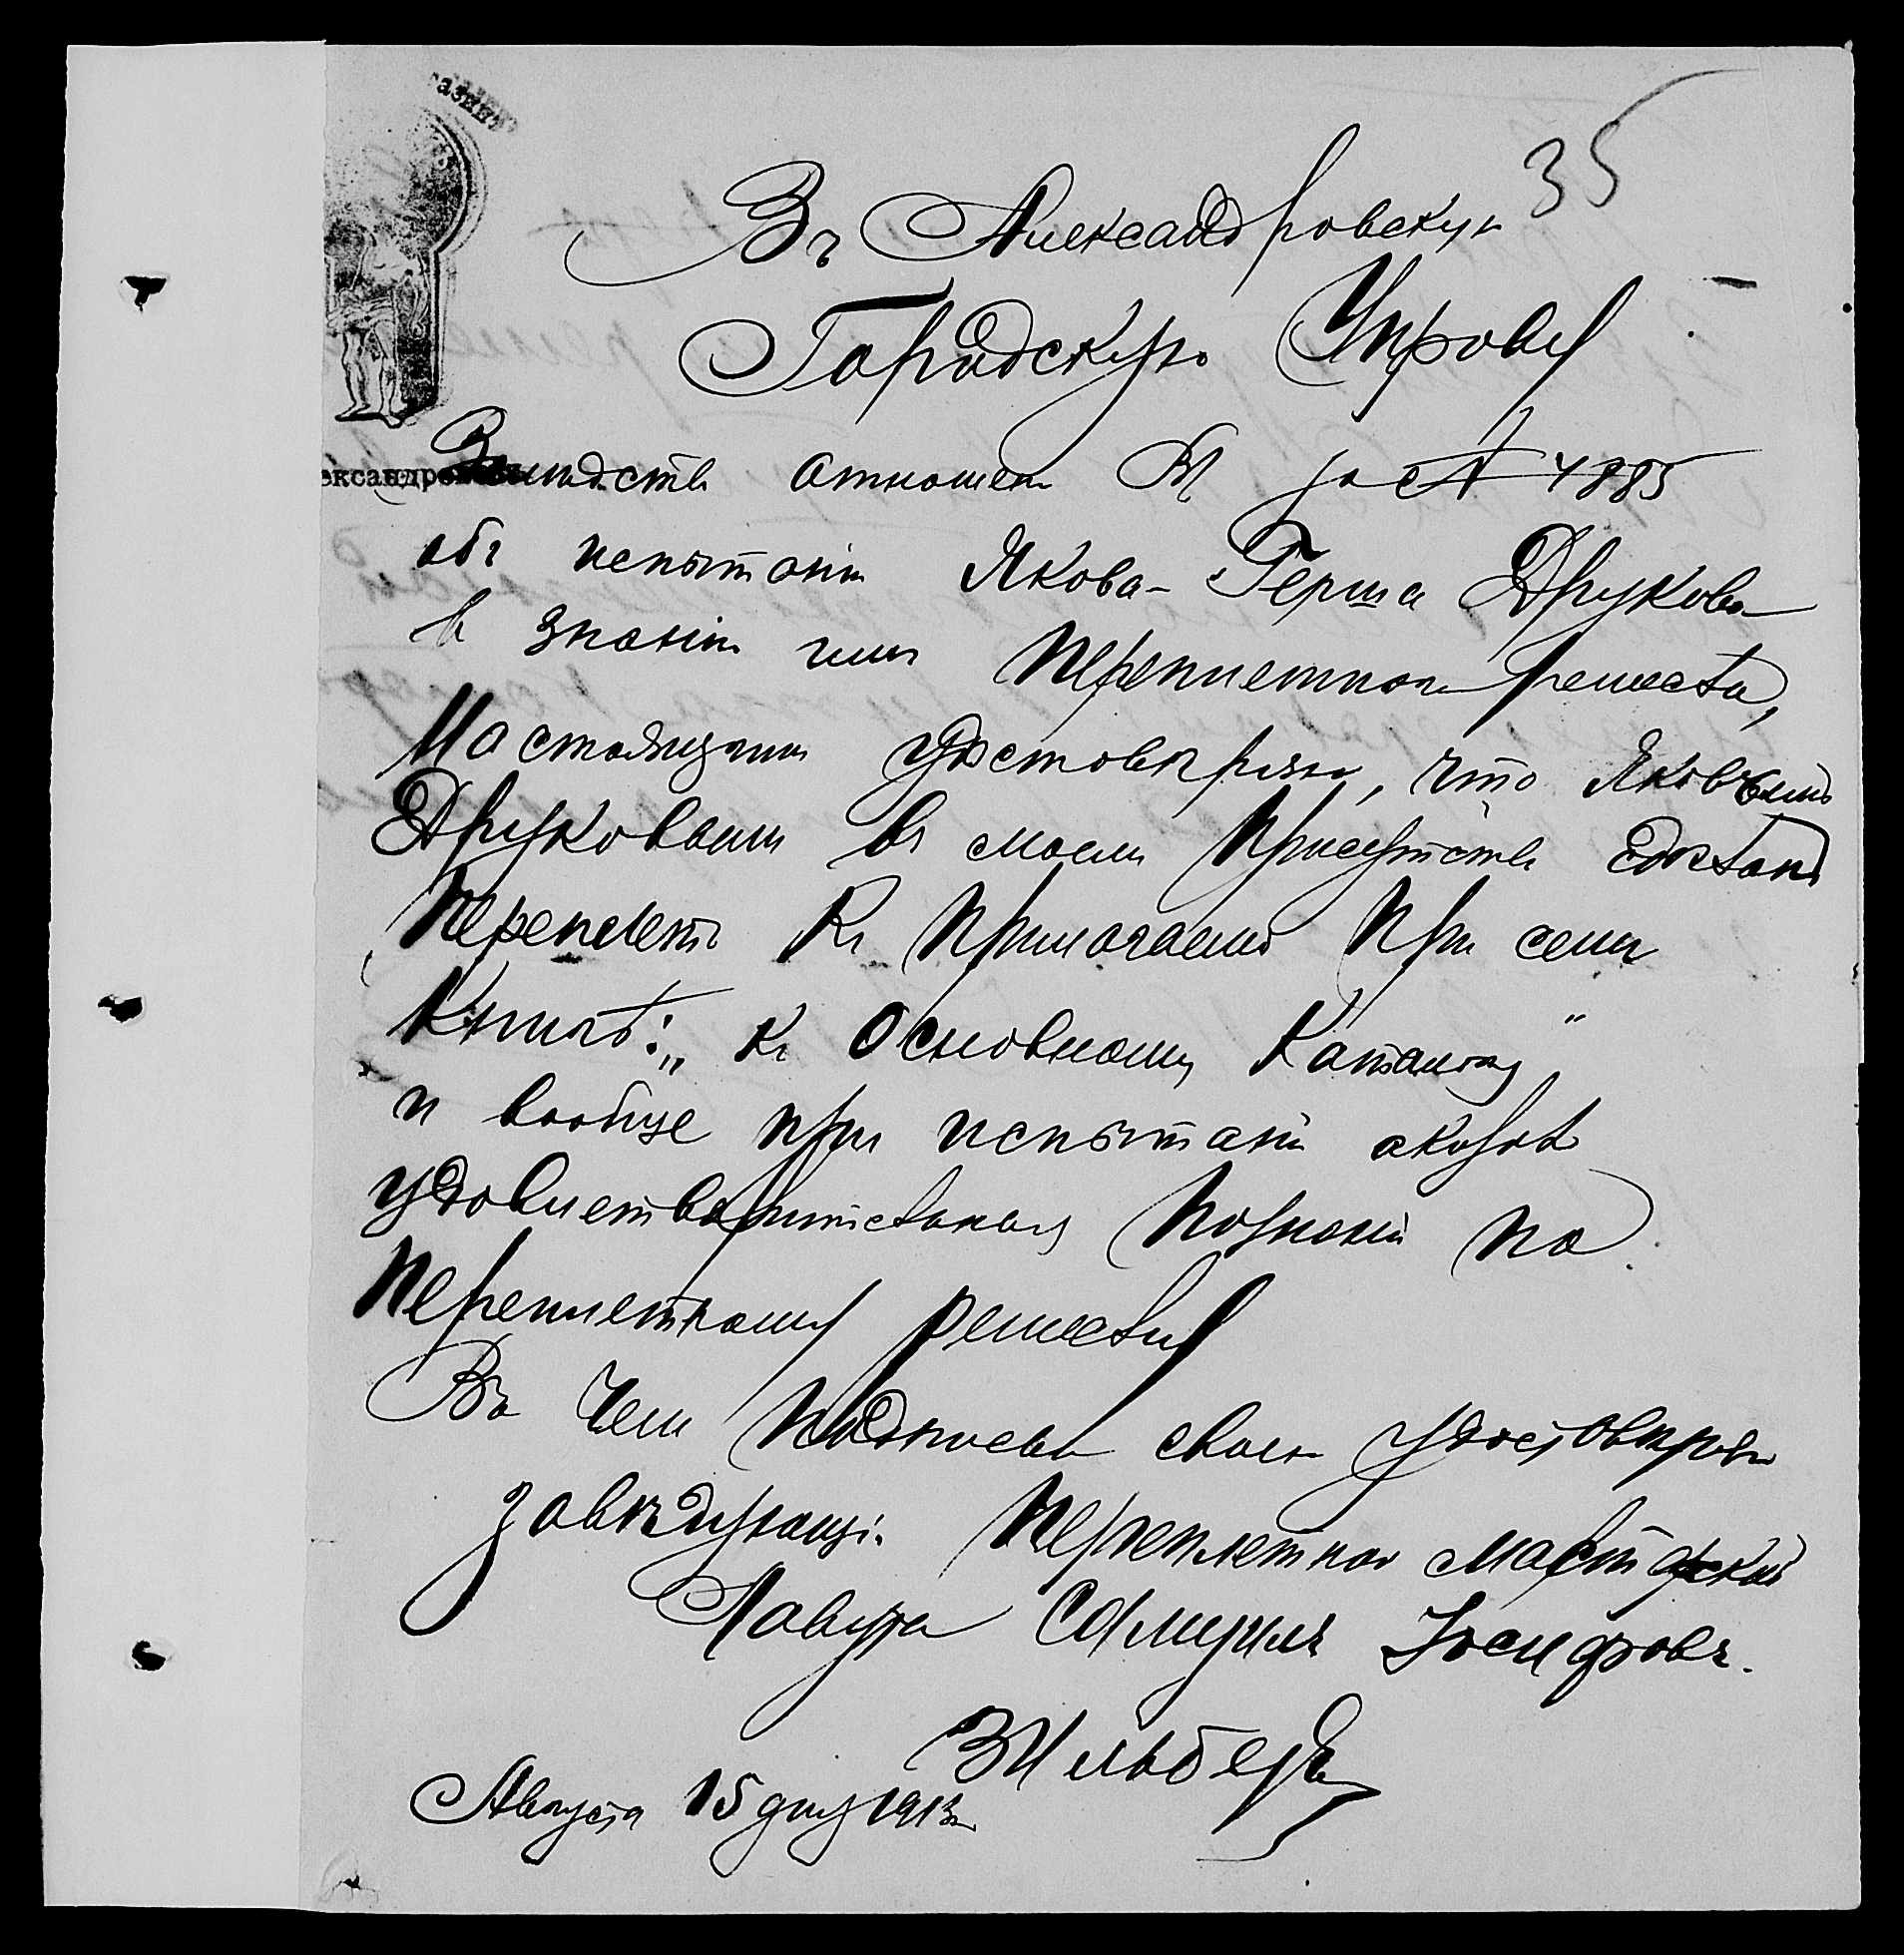 азинъ
35
Въ Александровскую
Городскую Управу
ександровскъ
Вслѣдств отношен В за № 4885
объ испытанiи Якова-Герша Друкова
в знанiи имъ переплетнаго ремесла,
Настоящимъ удостовѣряю, что Яковомъ
Друковымъ въ моемъ присутств сдѣланъ
переплетъ къ прилогаемо при семъ
книгѣ: „къ Основному Каталогу"
и вообще при испытанi оказалъ
удовлетворительныя познанiя по
переплетному ремеслу
Въ чем подписью своею удостовѣряю
завѣдующi переплетной мастерской
Лавута Самуилъ Iосифовъ.
Зильберъ
Августа 15 дня 1913г